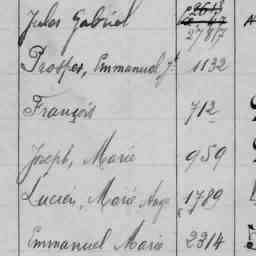 Jules Gabriel 2787
Prosper, Emmanuel Jh 1132
François 712
Joseph, Marie 959
Lucien, Marie Ange 1789
Emmanuel Marie 2314